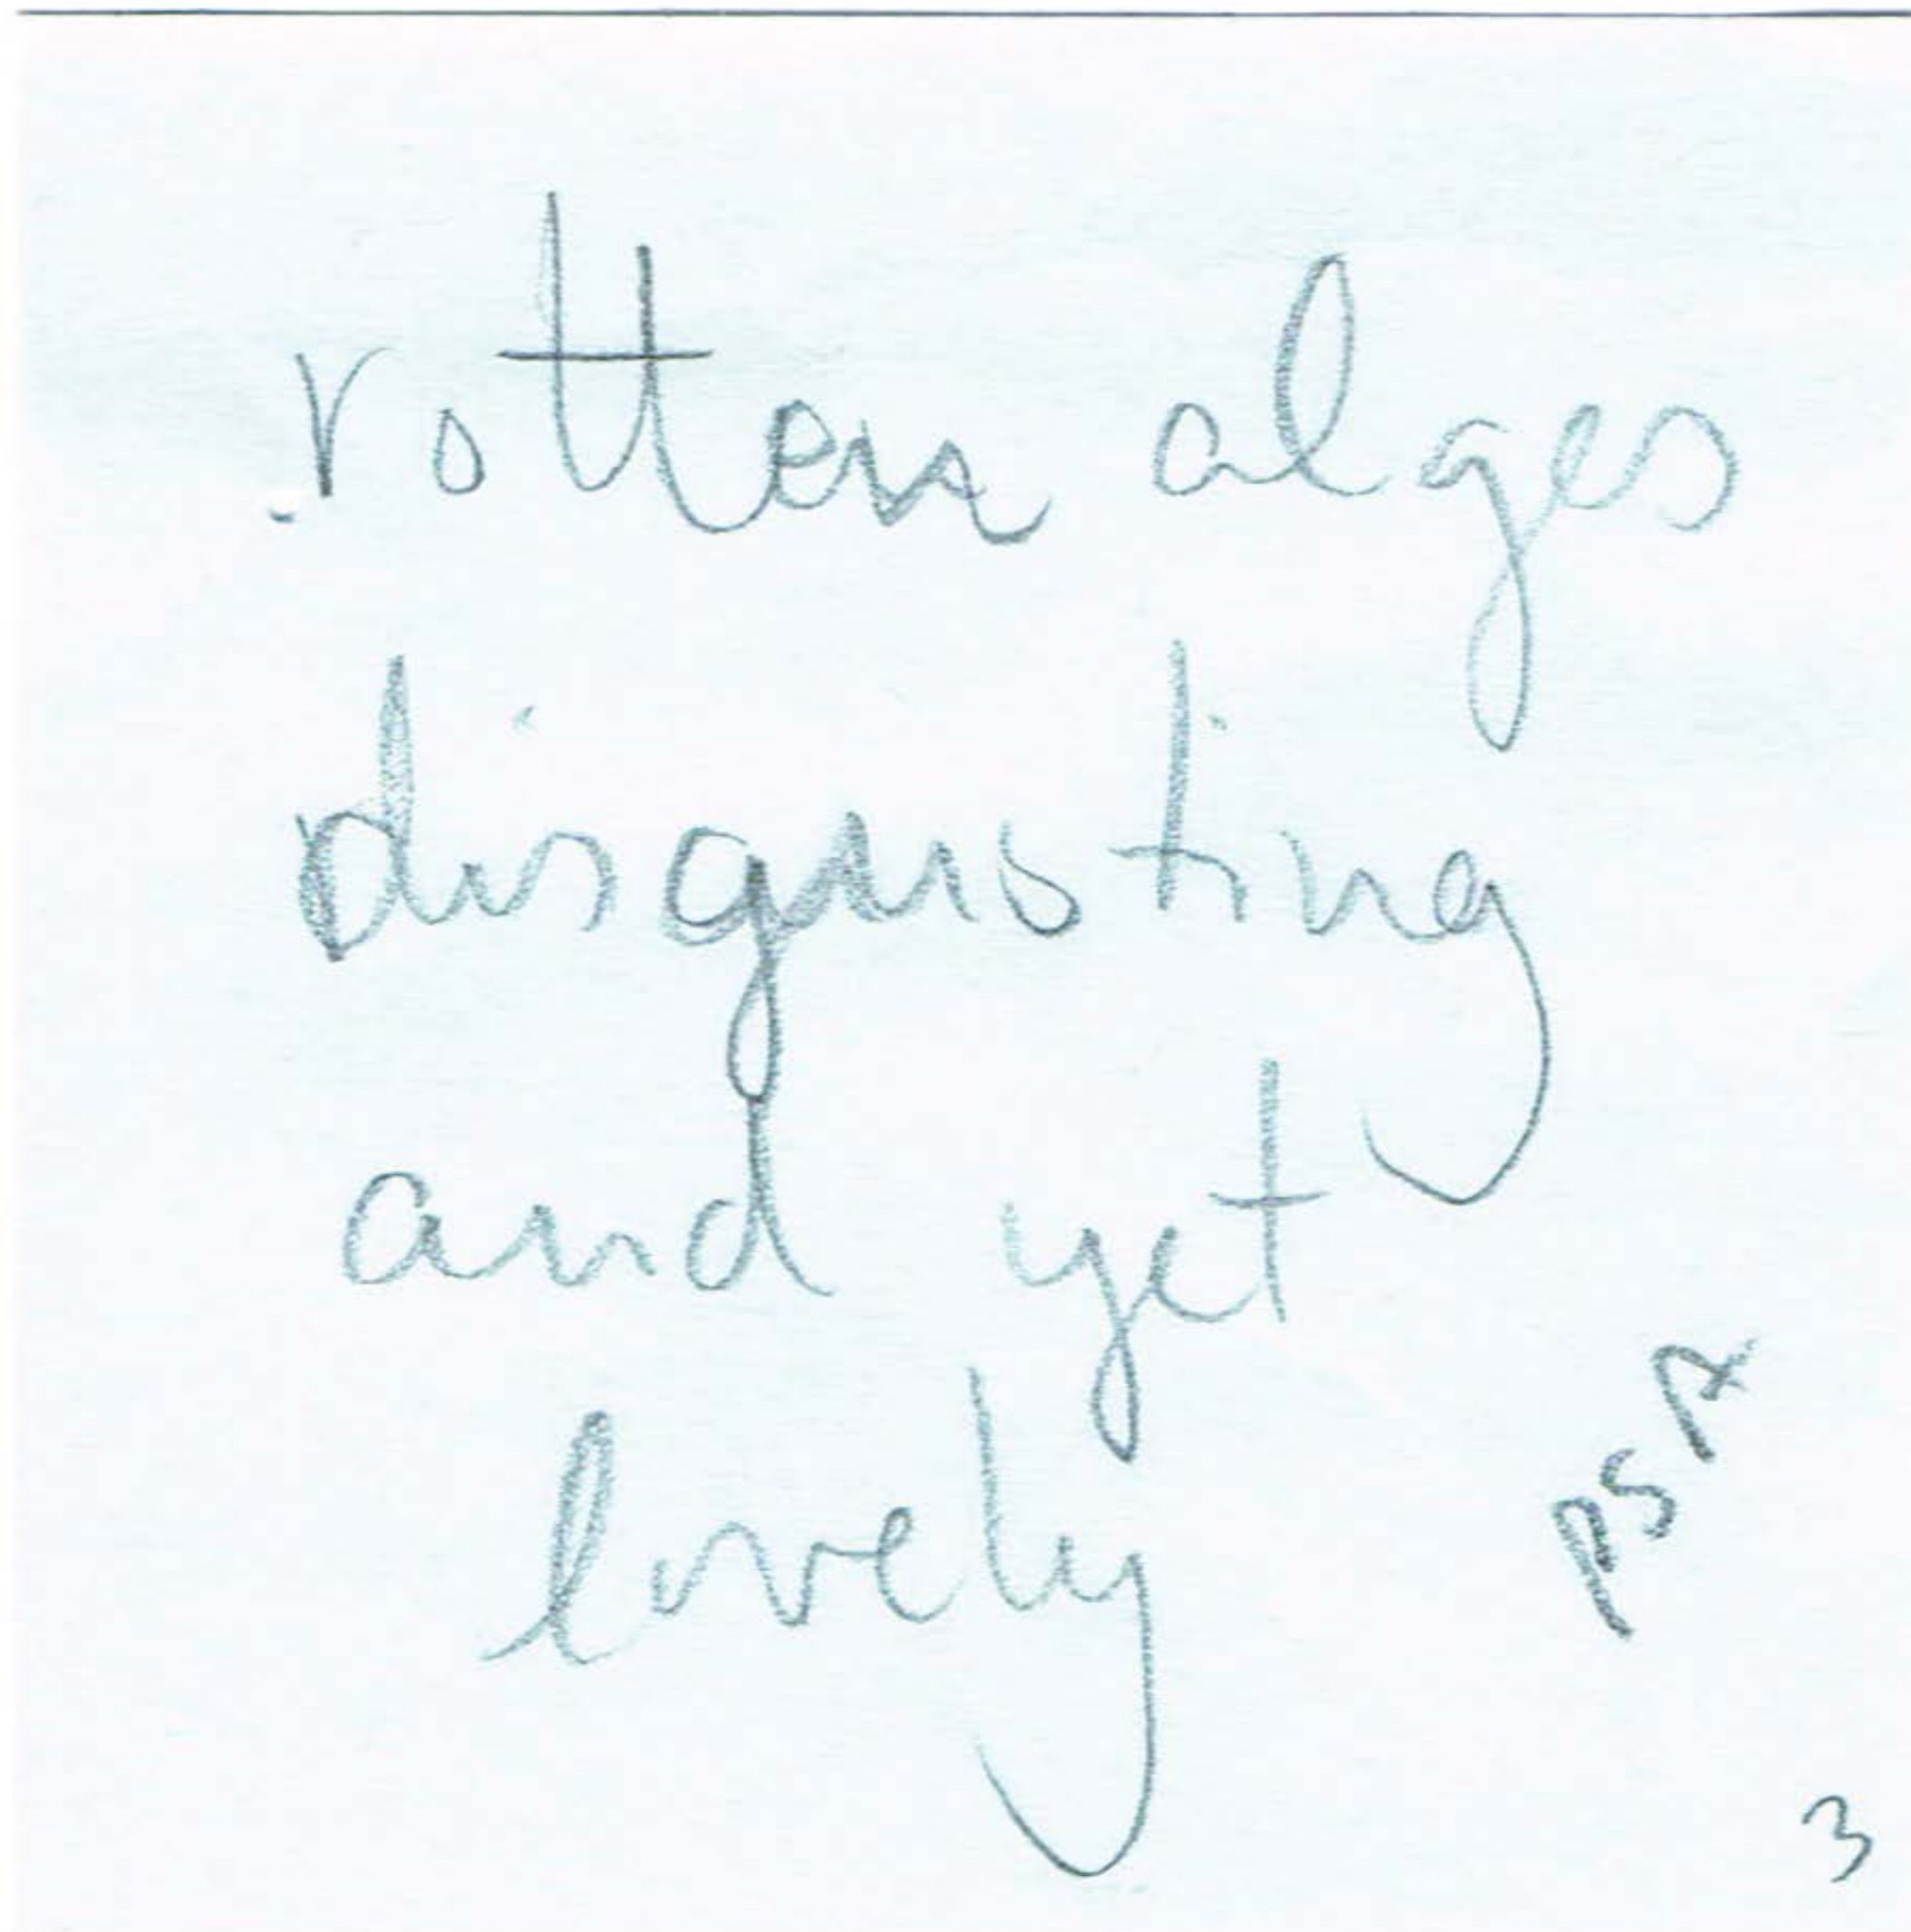 rotten alges
disgusting
and yet
lovely
PSA
3